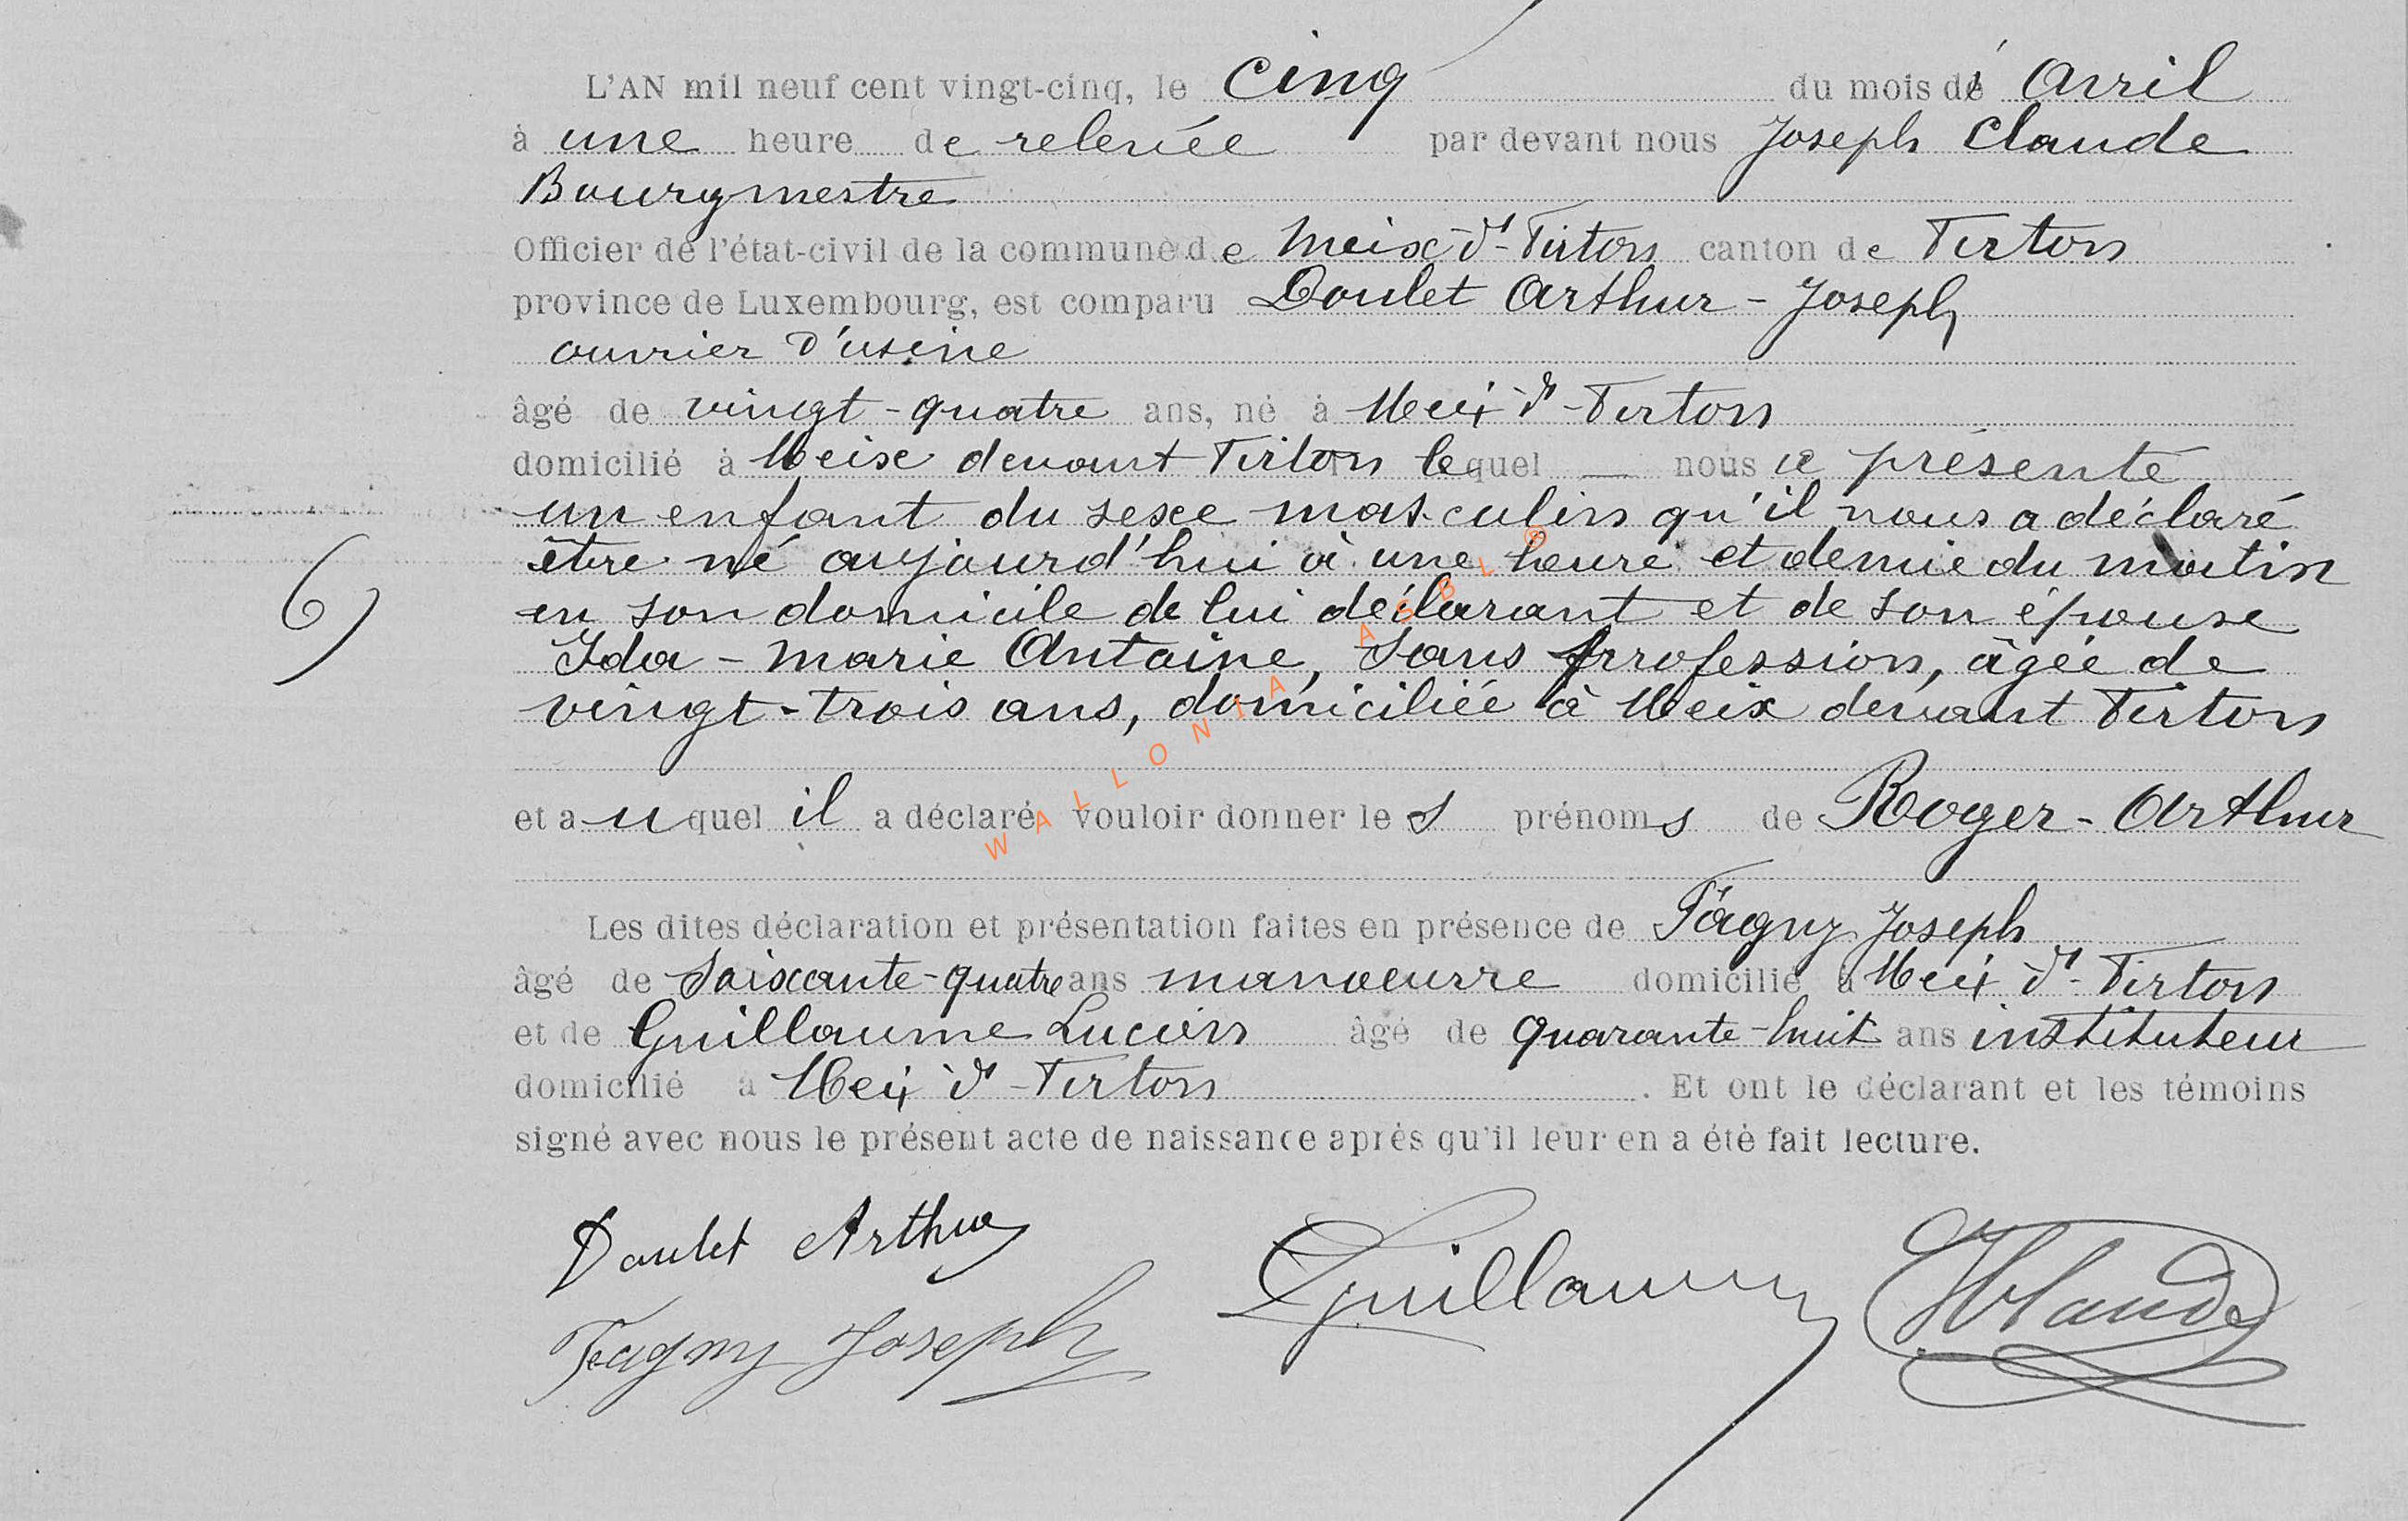 L'AN mil neuf cent vingt-cinq, le cinq du mois d'Avril
à une heure de relevée par devant nous Joseph Claude
Bourgmestre
Officier de l'état-civil de la commune de Meix-dt-Virton canton de Virton
province de Luxembourg, est comparu Doulet Arthur-Joseph
ouvrier d'usine
âgé de vingt-quatre ans, né à Meix dt-Virton
domicilié à Meix devant Virton lequel — nous a présenté
un enfant du sexe masculin qu'il nous a déclaré
être né aujourd'hui à une heure et demie du matin
6) en son domicile de lui déclarant et de son épouse
Ida-Marie Antoine, sans profession, âgée de
vingt-trois ans, domiciliée à Meix devant Virton
et auquel il a déclaré vouloir donner les prénoms de Roger-Arthur
Les dites déclaration et présentation faites en présence de Fagny Joseph
âgé de soixante-quatre ans manoeuvre domicilié à Meix dt-Virton
et de Guillaume Lucien âgé de quarante-huit ans instituteur
domicilié à Meix dt-Virton. Et ont le déclarant et les témoins
signé avec nous le présent acte de naissance après qu'il leur en a été fait lecture.
Doulet Arthur LGuillaume JClaude
Fagny Joseph
WALLONIA ASBL ®